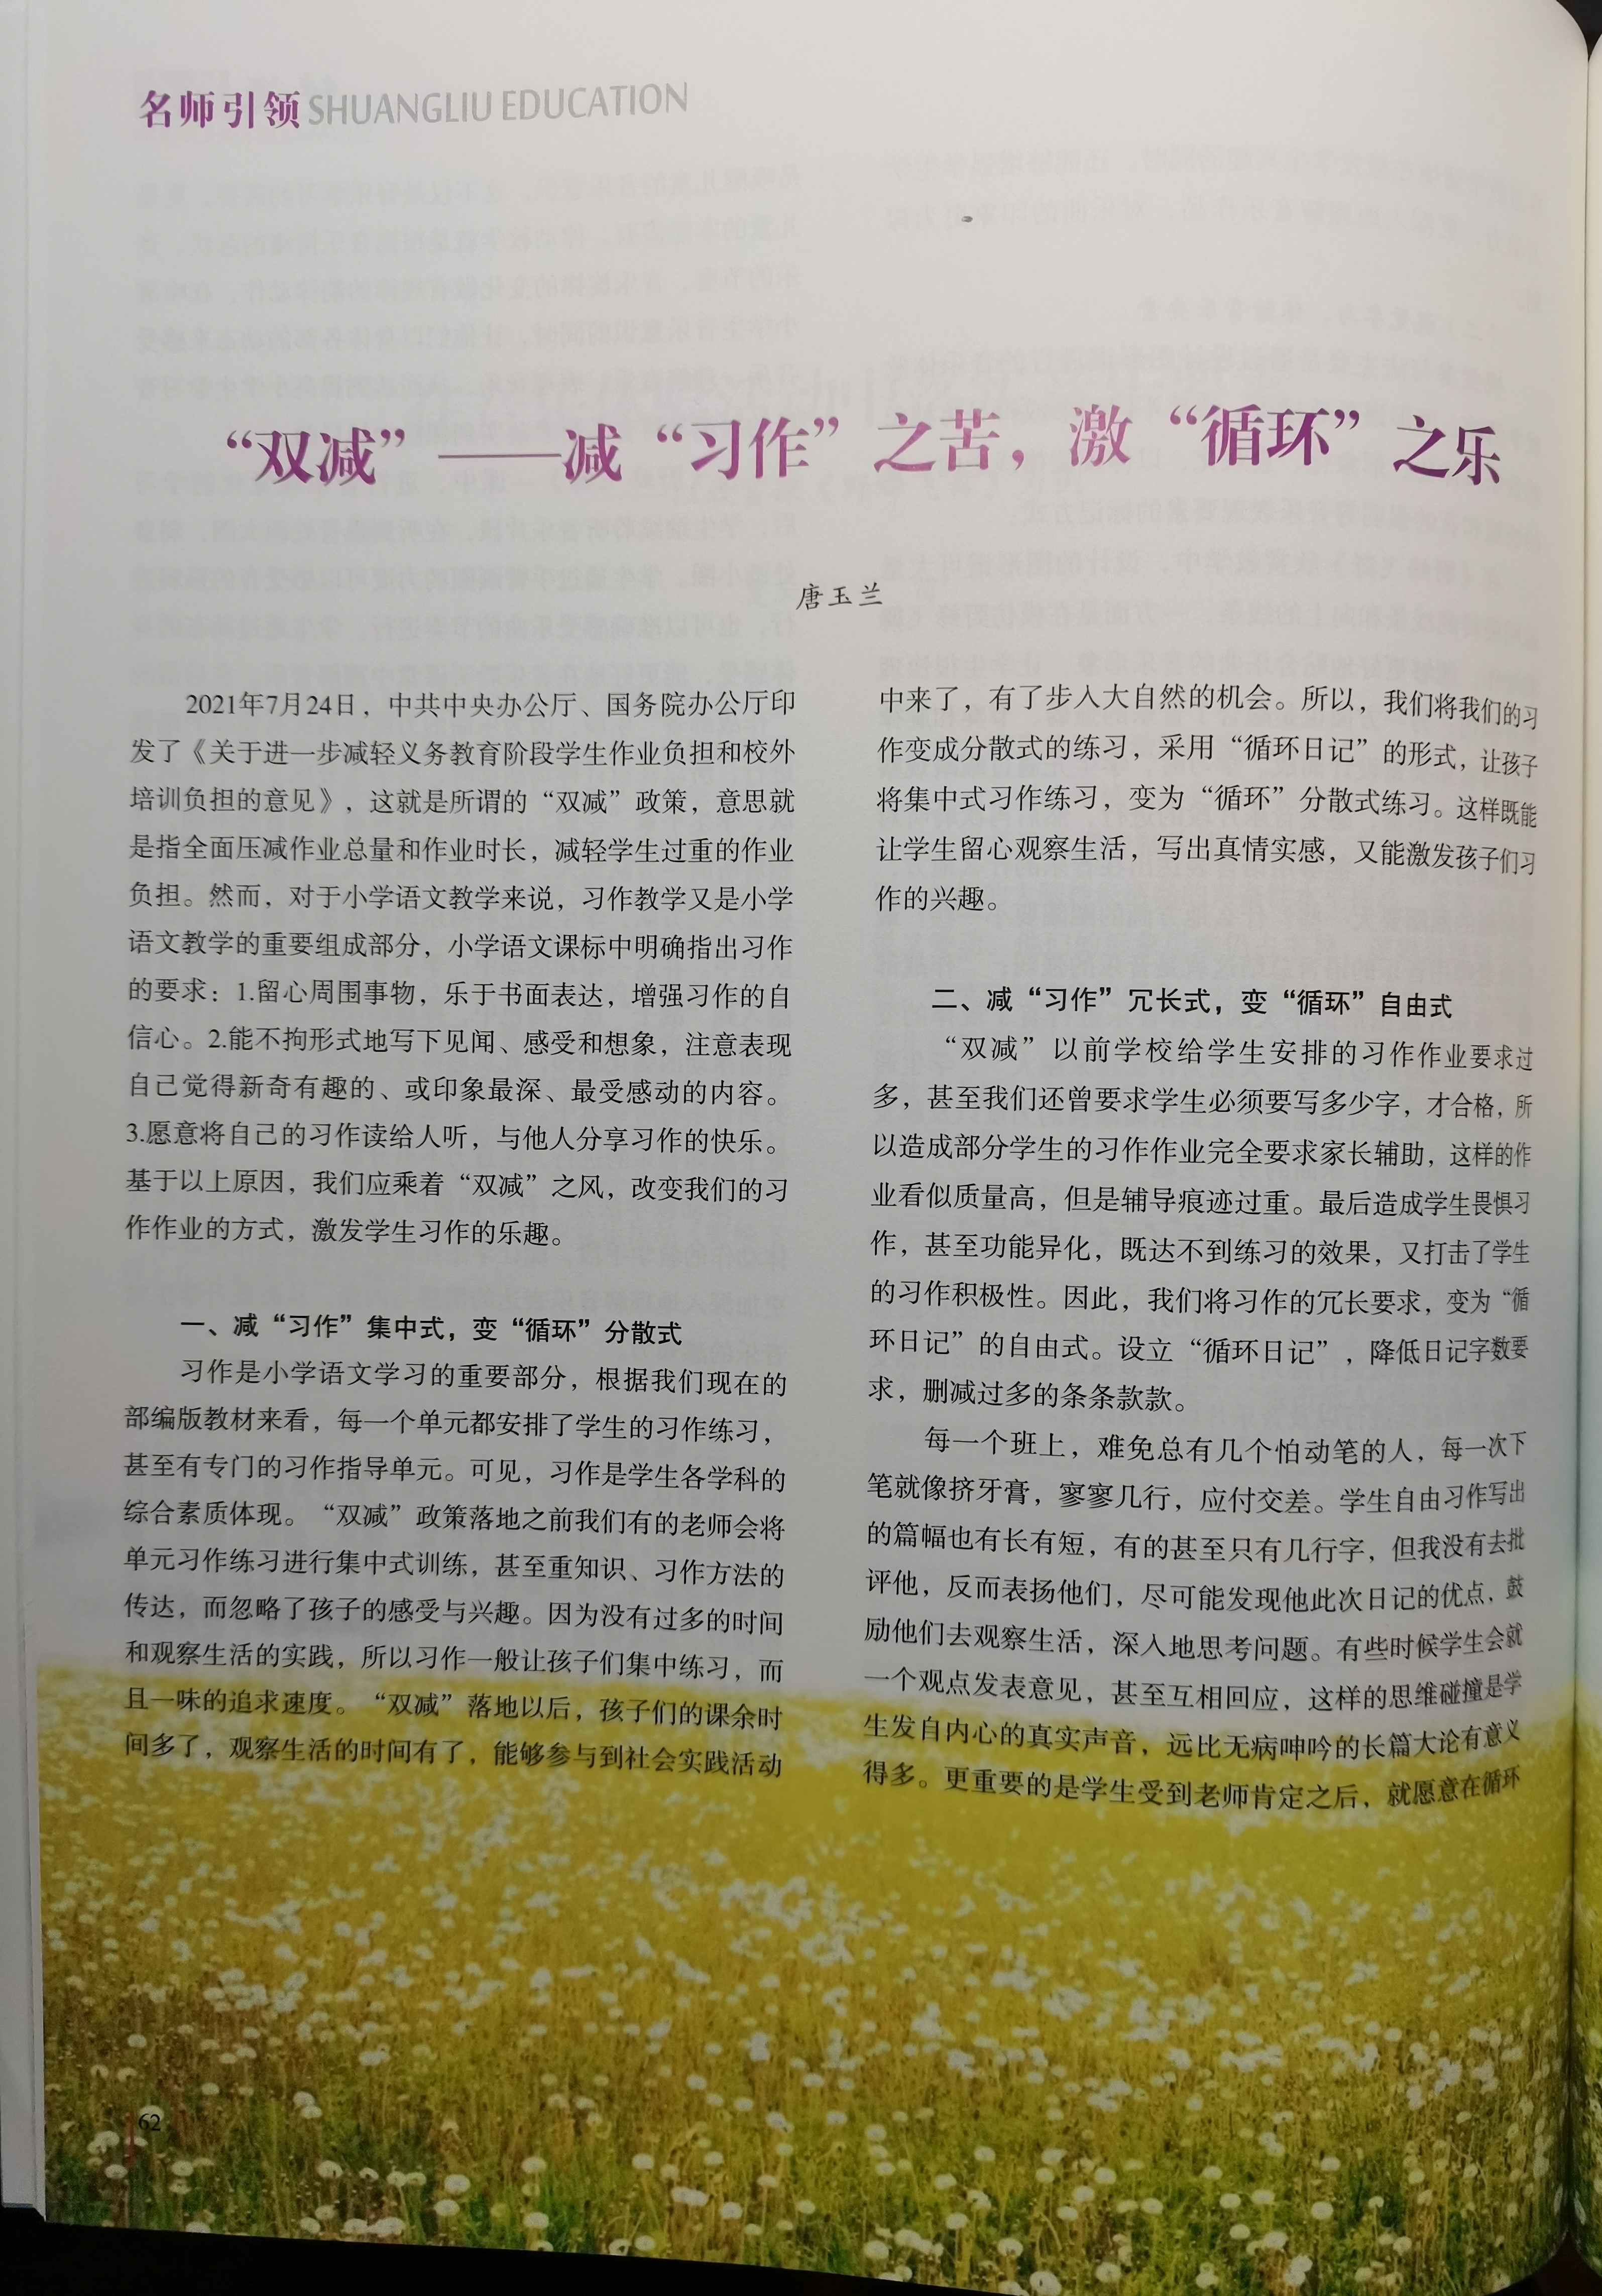 名师引领 SHUANGLIU EDUCATION
“双减”——减“习作”之苦，激“循环”之乐
唐玉兰
2021年7月24日，中共中央办公厅、国务院办公厅印
发了《关于进一步减轻义务教育阶段学生作业负担和校外
培训负担的意见》，这就是所谓的“双减”政策，意思就
是指全面压减作业总量和作业时长，减轻学生过重的作业
负担。然而，对于小学语文教学来说，习作教学又是小学
语文教学的重要组成部分，小学语文课标中明确指出习作
的要求：1.留心周围事物，乐于书面表达，增强习作的自
信心。2.能不拘形式地写下见闻、感受和想象，注意表现
自己觉得新奇有趣的、或印象最深、最受感动的内容。
3.愿意将自己的习作读给人听，与他人分享习作的快乐。
基于以上原因，我们应乘着“双减”之风，改变我们的习
作作业的方式，激发学生习作的乐趣。
一、减“习作”集中式，变“循环”分散式
习作是小学语文学习的重要部分，根据我们现在的
部编版教材来看，每一个单元都安排了学生的习作练习，
甚至有专门的习作指导单元。可见，习作是学生各学科的
综合素质体现。“双减”政策落地之前我们有的老师会将
单元习作练习进行集中式训练，甚至重知识、习作方法的
传达，而忽略了孩子的感受与兴趣。因为没有过多的时间
和观察生活的实践，所以习作一般让孩子们集中练习，而
且一味的追求速度。“双减”落地以后，孩子们的课余时
间多了，观察生活的时间有了，能够参与到社会实践活动
中来了，有了步入大自然的机会。所以，我们将我们的习
作变成分散式的练习，采用“循环日记”的形式，让孩子
将集中式习作练习，变为“循环”分散式练习。这样既能
让学生留心观察生活，写出真情实感，又能激发孩子们习
作的兴趣。
二、减“习作”冗长式，变“循环”自由式
“双减”以前学校给学生安排的习作作业要求过
多，甚至我们还曾要求学生必须要写多少字，才合格，所
以造成部分学生的习作作业完全要求家长辅助，这样的作
业看似质量高，但是辅导痕迹过重。最后造成学生畏惧习
作，甚至功能异化，既达不到练习的效果，又打击了学生
的习作积极性。因此，我们将习作的冗长要求，变为“循
环日记”的自由式。设立“循环日记”，降低日记字数要
求，删减过多的条条款款。
每一个班上，难免总有几个怕动笔的人，每一次下
笔就像挤牙膏，寥寥几行，应付交差。学生自由习作写出
的篇幅也有长有短，有的甚至只有几行字，但我没有去批
评他，反而表扬他们，尽可能发现他此次日记的优点，鼓
励他们去观察生活，深入地思考问题。有些时候学生会就
一个观点发表意见，甚至互相回应，这样的思维碰撞是学
生发自内心的真实声音，远比无病呻吟的长篇大论有意义
得多。更重要的是学生受到老师肯定之后，就愿意在循环
62